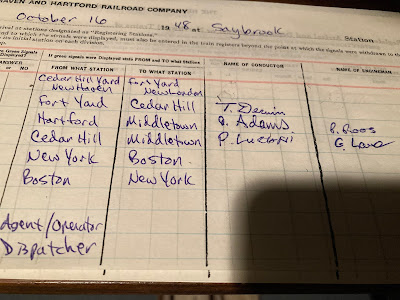 HAVEN AND HARTFORD RAILROAD COMPANY
October 16 1948 at Saybrook Station
arrival of stations designated as "Registering Stations."
and to which the signals were displayed, must also be entered in the train registers beyond the point at which the signals were withdrawn
Green Signals Displayed? If green signals were Displayed state FROM and TO what Station
ANSWER or NO FROM WHAT STATION TO WHAT STATION NAME OF CONDUCTOR NAME OF ENGINEMAN
Cedar Hill Yard Fort Yard
New Haven New London
Fort Yard Cedar Hill T.
Hartford Middletown Adams R. Roos
Cedar Hill Middletown P. G.
New York Boston
Boston New York
Agent/Operator
Dispatcher